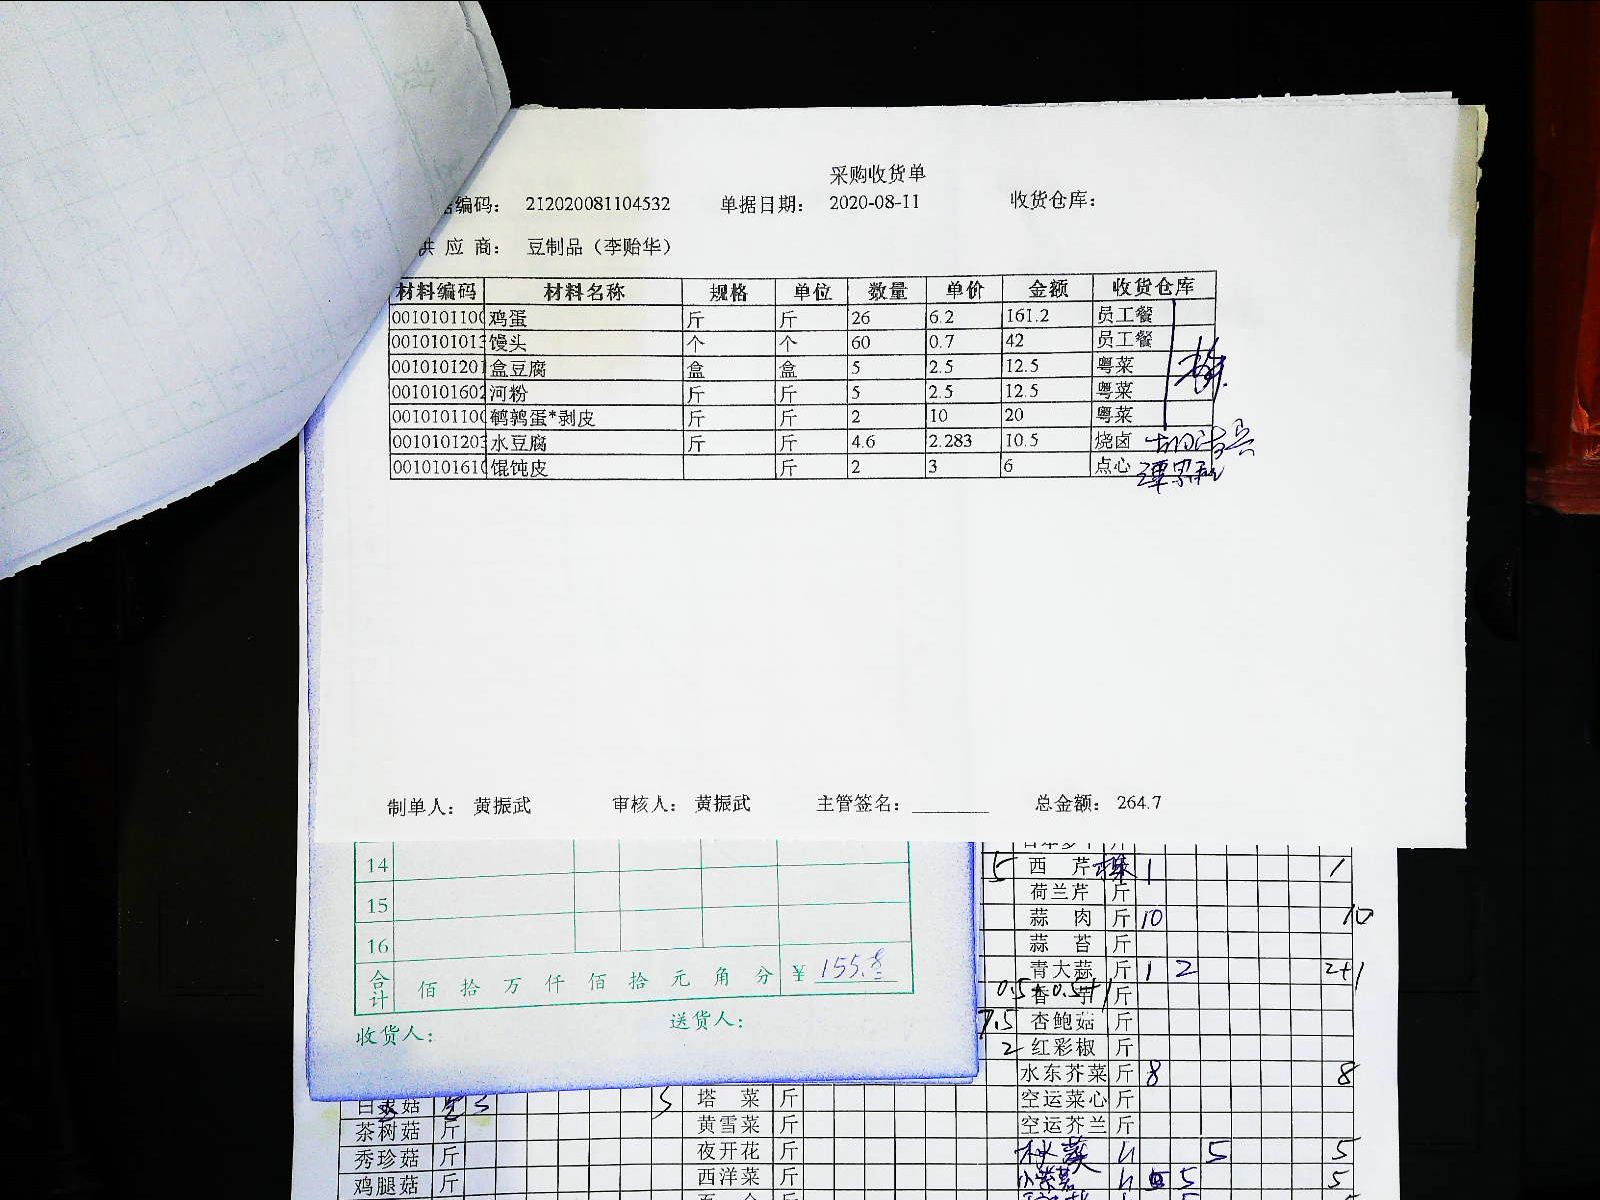 采购收货单
编码： 212020081104532 单据日期： 2020-08-11 收货仓库：
供 应 商： 豆制品（李贻华）
材料编码 材料名称 规格 单位 数量 单价 金额 收货仓库
001010110 鸡蛋 斤 斤 26 6.2 161.2 员工餐
001010101 馒头 个 个 60 0.7 42 员工餐
001010120 盒豆腐 盒 盒 5 2.5 12.5 粤菜
001010160 河粉 斤 斤 5 2.5 12.5 粤菜
001010110 鹌鹑蛋*剥皮 斤 斤 2 10 20 粤菜
001010120 水豆腐 斤 斤 4.6 2.283 10.5 烧卤
001010161 馄饨皮 斤 2 3 6 点心
制单人： 黄振武 审核人： 黄振武 主管签名： 总金额： 264.7
14
15
16
合计 佰 拾 万 仟 佰 拾 元 角 分 ¥ 155.8
收货人： 送货人：
5 西 芹 1 1
荷兰芹 斤
蒜 肉 斤 10 10
蒜 苔 斤
青大蒜 斤 1 2 2+1
0.5+0.5+1 香 芋 斤
7.5 杏鲍菇 斤
2 红彩椒 斤
水东芥菜 斤 8 8
空运菜心 斤
空运芥兰 斤
秋葵 5 5
5 5
5 塔 菜 斤
茶树菇 斤 黄雪菜 斤
秀珍菇 斤 夜开花 斤
鸡腿菇 斤 西洋菜 斤